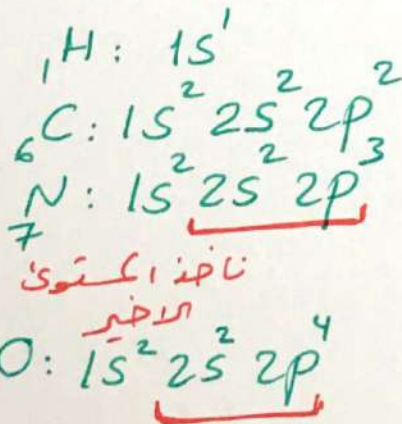 ₁H: 1s¹
₆C: 1s² 2s² 2p²
₇N: 1s² 2s² 2p³
ناخذ المستوى
الاخير
O: 1s² 2s² 2p⁴